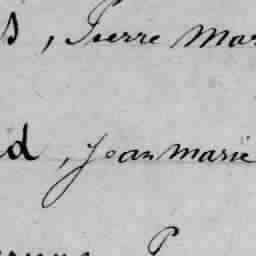 s, Pierre Mar
d, Jean marie